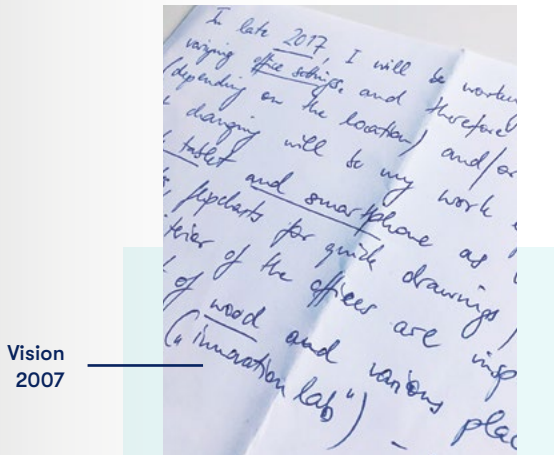 In late 2017, I will be
varying office settings, and therefore
(depending on the location) and/or
changing will be my work
tablet and smartphone as
flipcharts for quick drawings,
of the offices are
of wood and various
("innovation lab") –
Vision
2007